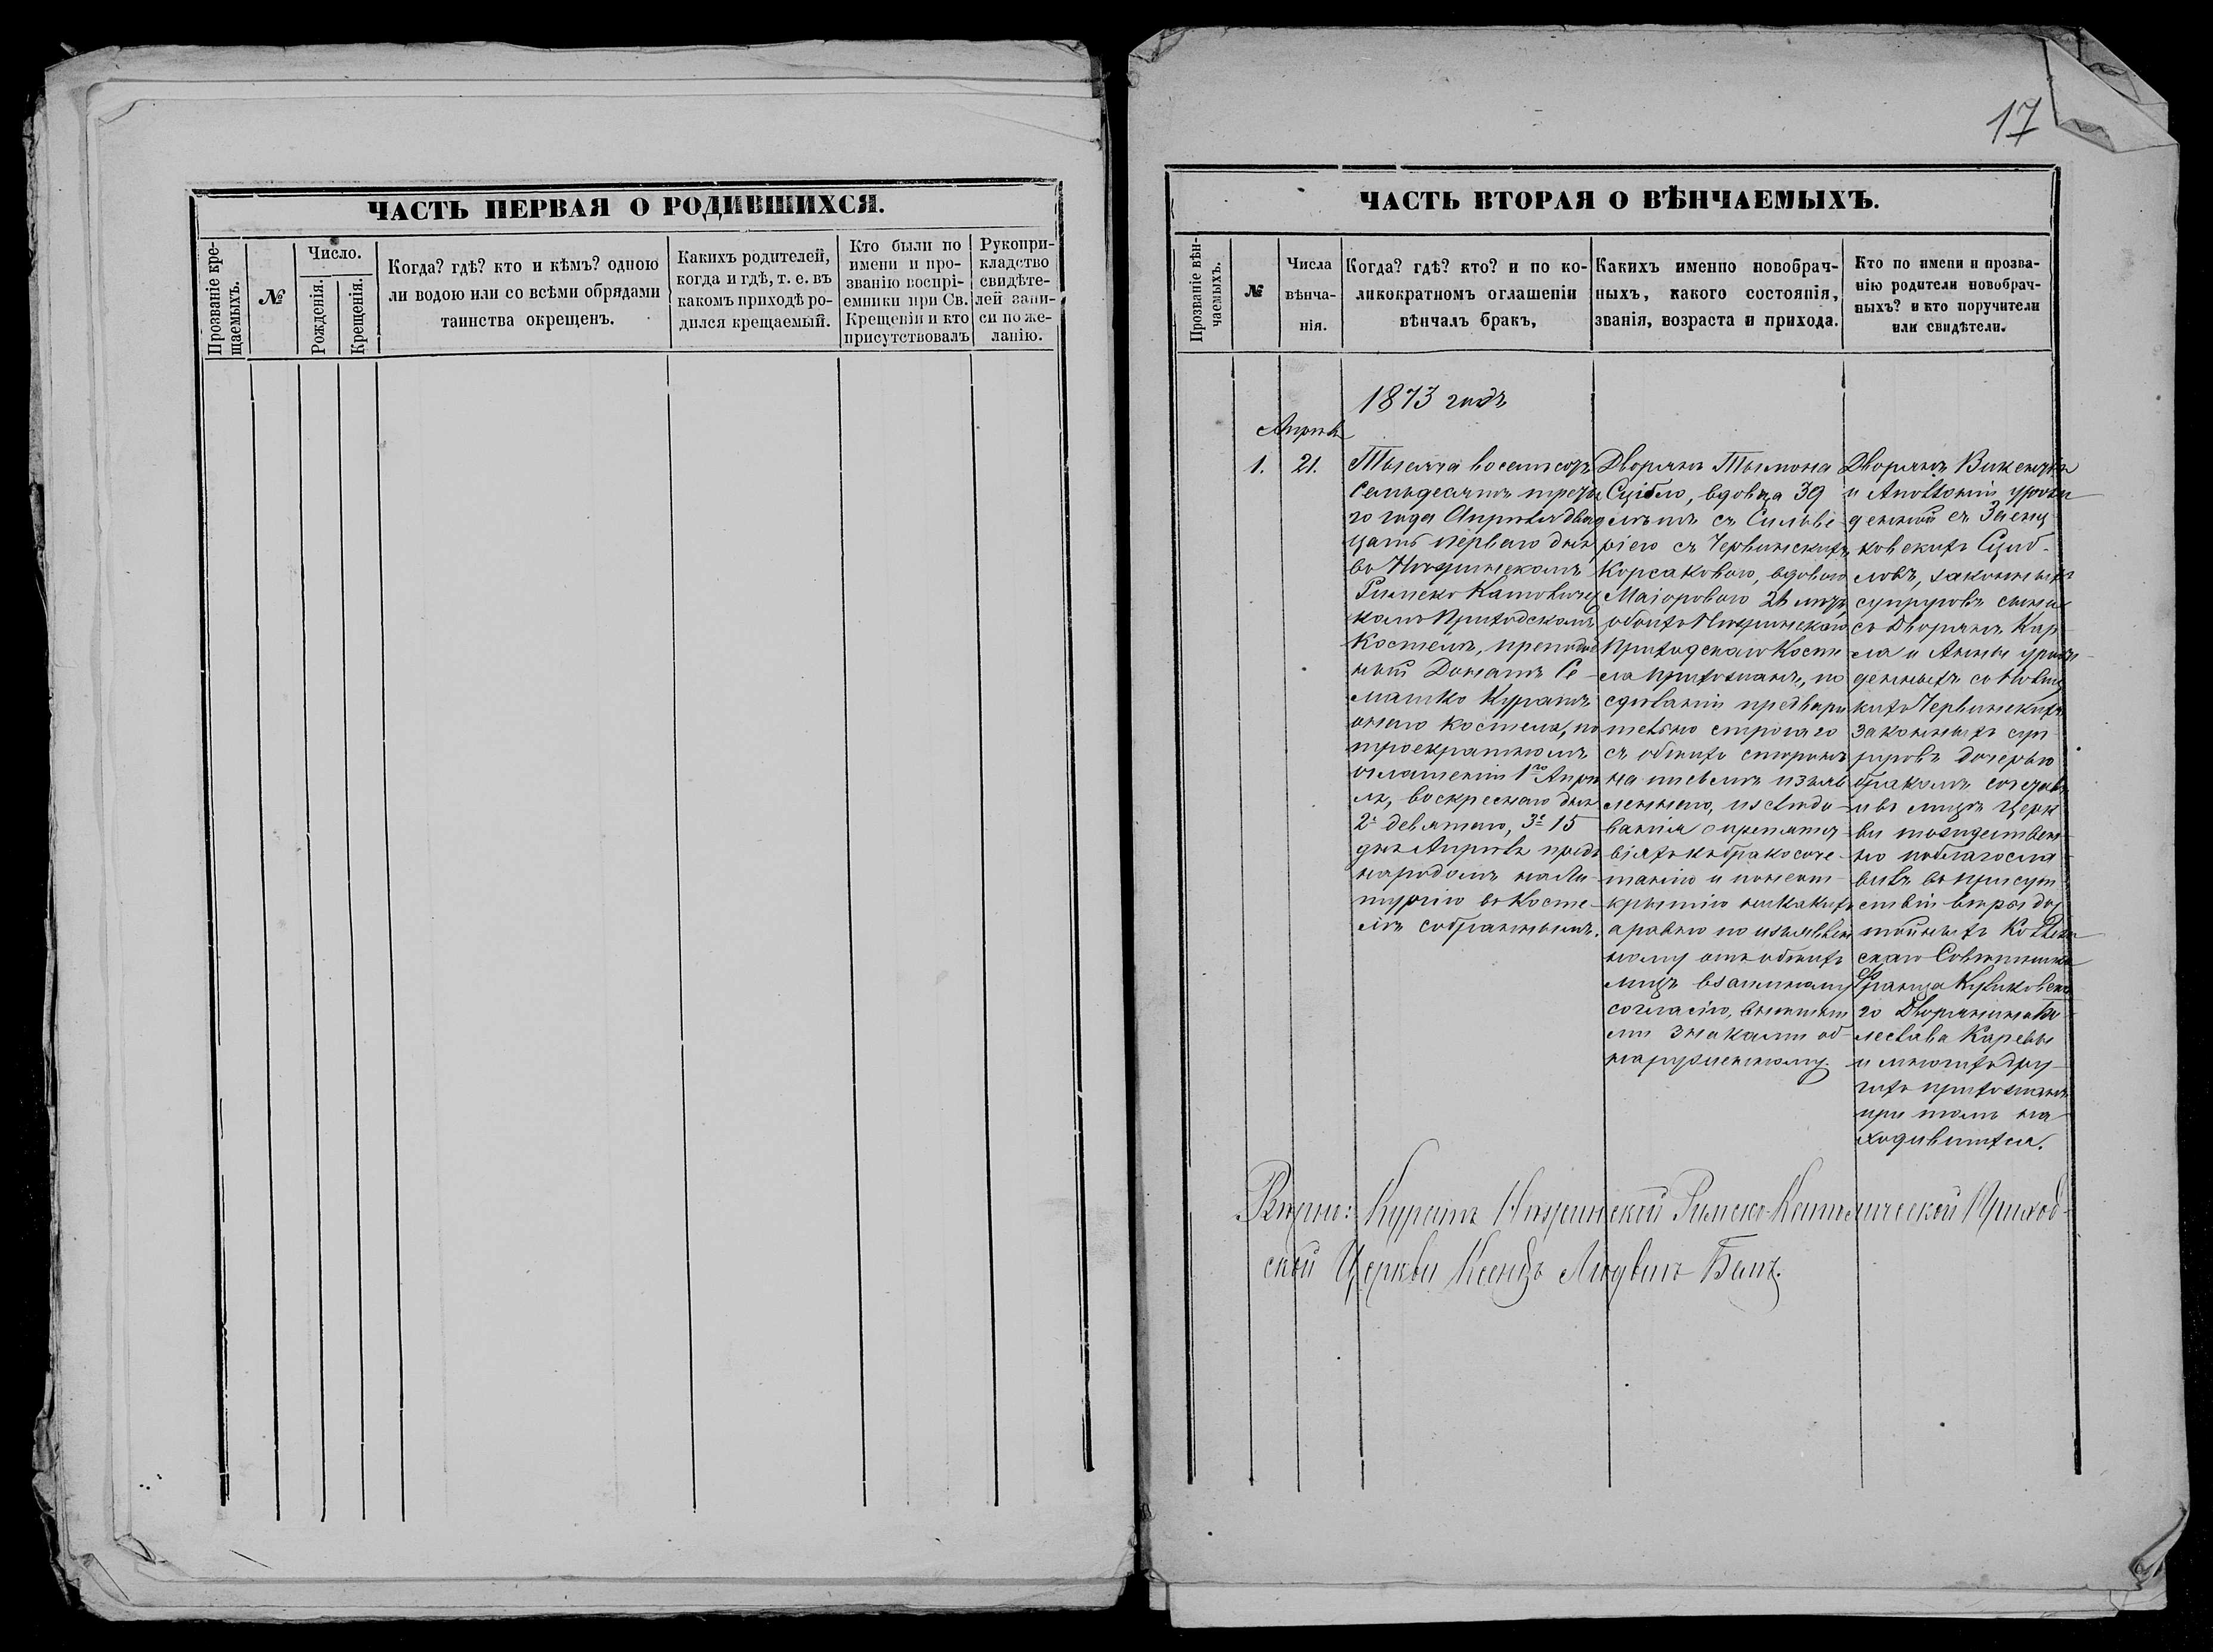 ЧАСТЬ ПЕРВАЯ О РОДИВШИХСЯ.
Прозваніе кре-
щаемыхъ.
№
Число.
Рожденія.
Крещенія.
Когда? гдѣ? кто и кѣмъ? одною
ли водою или со всѣми обрядами
таинства окрещенъ.
Какихъ родителей,
когда и гдѣ, т. е. въ
какомъ приходѣ ро-
дился крещаемый.
Кто были по
имени и про-
званію воспрі-
емники при Св.
Крещеніи и кто
присутствовалъ
Рукопри-
кладство
свидѣте-
лей запи-
си по же-
ланію.
17
ЧАСТЬ ВТОРАЯ О ВѢНЧАЕМЫХЪ.
Прозваніе вѣн-
чаемыхъ.
№
Числа
вѣнча-
нія.
Когда? гдѣ? кто? и по ко-
ликократномъ оглашеніи
вѣнчалъ бракъ,
Какихъ именно новобрач-
ныхъ, какого состоянія,
званія, возраста и прихода.
Кто по имени и прозва-
нію родители новобрач-
ныхъ? и кто поручители
или свидѣтели.
1873 годъ
Апрѣль
1.
21.
Тысяча восемьсотъ
семьдесятъ третья
го года Апрѣля двад
цать перваго дня
во
Римско Католичес
комъ Приходскомъ
Костелѣ, преподоб
ный Донатъ Се-
машко Куратъ
онаго костела, по
троекратномъ
оглашеніи 1го Апрѣ
ля, воскреснаго дня
2е девятаго, 3е 15
дня Апрѣля предъ
народомъ на Ли-
тургію въ Косте-
лѣ собраннымъ.
Дворянъ Тымона
Сцибло, вдовца 39
лѣтъ съ Сильве
ріею съ Червинскихъ
Корсаковою, вдовою
Маіоровою 26 лѣтъ
обоихъ
Приходскаго Косте
ла прихожанъ, по
сдѣланіи предвари
тельно строгаго
съ обѣихъ сторонъ
на письмѣ изъяв
леннаго, изслѣдо-
ванія о препятст
віяхъ къ бракосоче-
танію и неот-
крытію никакихъ
а равно по изъявлен
ному отъ обѣихъ
лицъ взаимному
согласію, внѣшни
ми знаками об-
наруженному.
Дворянъ Викентія
и Аполлоніи урож
денной съ Заенч
ковскихъ Сциб-
ловъ, законныхъ
супруговъ сына
съ Дворянъ Кар
ла и Анны урож
денныхъ
Червинскихъ
законныхъ суп
руговъ дочерью
бракомъ сочеталъ
и въ лицѣ Церк
ви торжествен
но поблагосло
вилъ въ присут
ствіи вѣры дос
тойныхъ Коллеж
скаго Совѣтника
Франца Куликовска
го Дворянина Бо
леслава Каревы
и многихъ дру-
гихъ прихожанъ
при томъ на-
ходившихся.
Вѣрно: Куратъ Римско-Католической Приход-
ской Церкви Ксендзъ Людвигъ